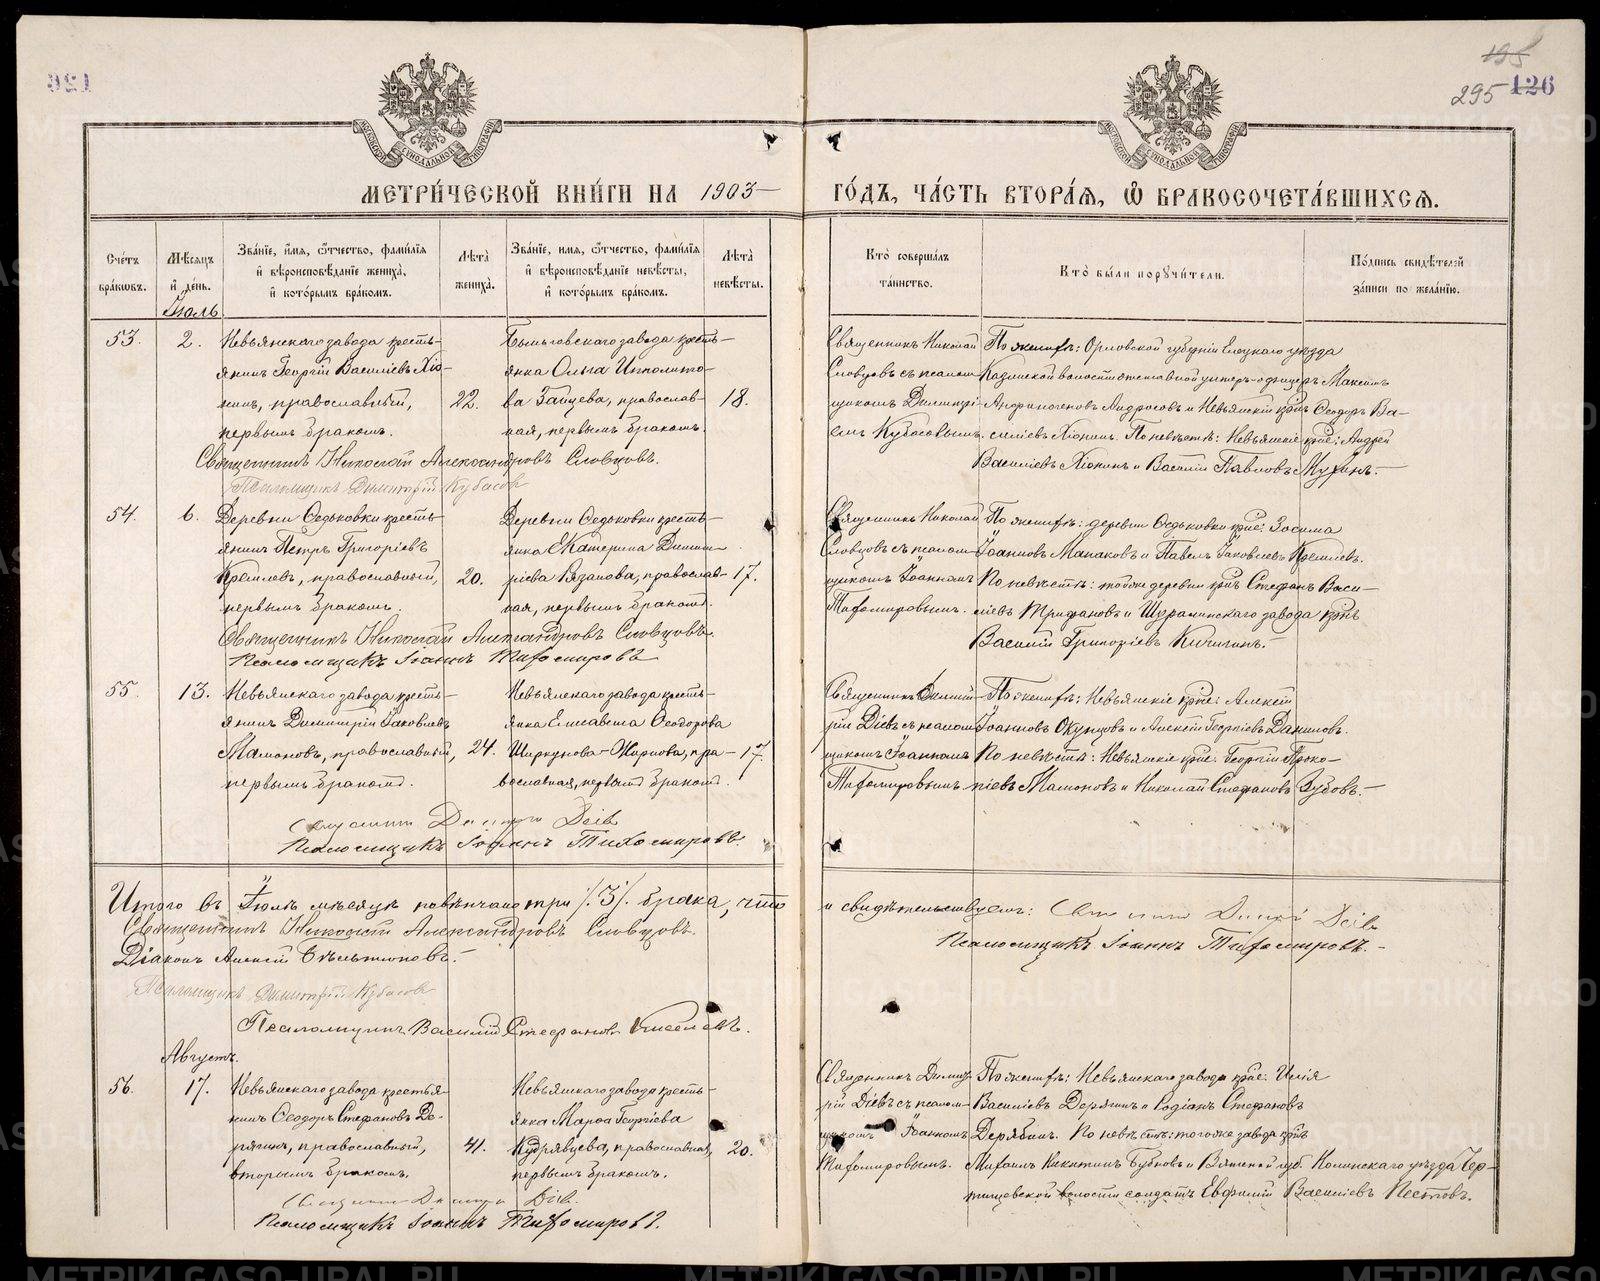 195
295 126
МЕТРИ́ЧЕСКОЙ КНИ́ГИ НА 1903 ГО́ДЪ, ЧА́СТЬ ВТОРА́Я, Ѽ БРАКОСОЧЕТА́ВШИХСЯ.
Сче́тъ бра́ковъ.
Мѣ́сяцъ и҆ де́нь.
Зва́нїе, и҆́мя, ѻ҆́тчество, фами́лїя и҆ вѣроисповѣ́данїе жениха̀, и҆ кото́рымъ бра́комъ.
Лѣ́та жениха̀.
Зва́нїе, имя, ѻ҆́тчество, фами́лїя и҆ вѣроисповѣ́данїе невѣ́сты, и҆ кото́рымъ бра́комъ.
Лѣ́та невѣ́сты.
Кто̀ соверша́лъ та́инство.
Кто̀ бы́ли порꙋчи́тели.
По́дпись свидѣ́телей за́писи по жела́нїю.
Іюль
53. 2.
Невьянскаго завода кресть-
янинъ Георгій Василіевъ Хіо-
нинъ, православный, 22.
первымъ бракомъ.
Быньговскаго завода кресть-
янка Ольга Ипполито-
ва Гайцева, православ- 18.
ная, первымъ бракомъ.
Священникъ Николай
Словцовъ съ псалом-
щикомъ Димитрі-
емъ Кубасовымъ.
По женихѣ: Орловской губерніи Елецкаго уѣзда
Казинской волости отставной унтеръ-офицеръ Максимъ
Андрониковъ Андросовъ и Невьянскій крнъ Ѳеодоръ Ва-
силіевъ Хіонинъ. По невѣстѣ: Невьянскіе крне: Андрей
Василіевъ Хіонинъ и Василій Павловъ Мухинъ.
Священникъ Николай Александровъ Словцовъ.
Псаломщикъ Димитрій Кубасовъ
54. 6.
Деревни Ѳедьковки кресть-
янинъ Петръ Григоріевъ
Кремлевъ, православный, 20.
первымъ бракомъ.
Деревни Ѳедьковки кресть-
янка Екатерина Димит-
ріева Рязанова, православ- 17.
ная, первымъ бракомъ.
Священникъ Николай
Словцовъ съ псалом-
щикомъ Іоанномъ
Тихомировымъ.
По женихѣ: деревни Ѳедьковки крне: Зосима
Іоанновъ Манаковъ и Павелъ Іаковлевъ Кремлевъ.
По невѣстѣ: тойже деревни крнъ Стефанъ Васи-
ліевъ Трифановъ и Шуралинскаго завода крнъ
Василій Григоріевъ Кичигинъ.
Священникъ Николай Александровъ Словцовъ.
Псаломщикъ Іоаннъ Тихомировъ
55. 13.
Невьянскаго завода кресть-
янинъ Димитрій Іаковлевъ
Мамоновъ, православный, 24.
первымъ бракомъ.
Невьянскаго завода кресть-
янка Елисавета Ѳеодорова
Ширкунова-Жирнова, пра- 17.
вославная, первымъ бракомъ.
Священникъ Димит-
рій Діевъ съ псалом-
щикомъ Іоанномъ
Тихомировымъ.
По женихѣ: Невьянскіе крне: Алексѣй
Іоанновъ Окунцовъ и Алексѣй Георгіевъ Даниловъ.
По невѣстѣ: Невьянскіе крне: Георгій Проко-
піевъ Мамоновъ и Николай Стефановъ Зубовъ.
Священникъ Димитрій Діевъ
Псаломщикъ Іоаннъ Тихомировъ.
Итого въ Іюлѣ мѣсяцѣ повѣнчано три /.3/. брака, что
и свидѣтельствуемъ: Священникъ Димитрій Діевъ
Священникъ Николай Александровъ Словцовъ.
Псаломщикъ Іоаннъ Тихомировъ.
Діаконъ Алексѣй Бѣльтюковъ.
Псаломщикъ Димитрій Кубасовъ
Псаломщикъ Василій Стефановъ Киселевъ.
Августъ.
56. 17.
Невьянскаго завода крестья-
нинъ Ѳеодоръ Стефановъ Де-
рягинъ, православный, 41.
вторымъ бракомъ.
Невьянскаго завода кресть-
янка Марѳа Георгіева
Кудрявцева, православная, 20.
первымъ бракомъ.
Священникъ Димит-
рій Діевъ съ псалом-
щикомъ Іоанномъ
Тихомировымъ.
По женихѣ: Невьянскаго завода крне: Илія
Василіевъ Дерягинъ и Родіонъ Стефановъ
Дерябинъ. По невѣстѣ: тогоже завода крнъ
Михаилъ Никитинъ Бубновъ и Вятской губ. Нолинскаго уѣзда Чер-
тищевской волости солдатъ Евфимій Василіевъ Пестовъ.
Священникъ Димитрій Діевъ
Псаломщикъ Іоаннъ Тихомировъ.
METRIKI.GASO-URAL.RU